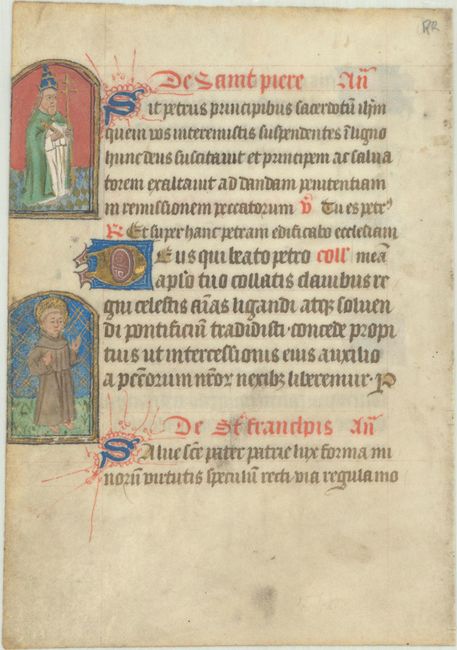 RR
De Saint piere An
Dit petrus principibus sacerdotū ihm
quem vos interemistis suspendentes ī ligno
hunc deus suscitauit et principem ac salua
torem exaltauit ad dandam penitentiam
in remissionem peccatorum V Tu es petr
R Et super hanc petram edificabo ecclesiam
Deus qui beato petro coll meā
aplo tuo collatis clauibus re
gni celestis aīas ligandi atqȝ soluen
di pontificium tradidisti · concede propi
tius ut intercessionis eius auxilio
a pccorum nrōr nexibȝ liberemur · P
De St franchis An
Salue scē pater patrie lux forma mi
norū virtutis speculū recti via regula mo